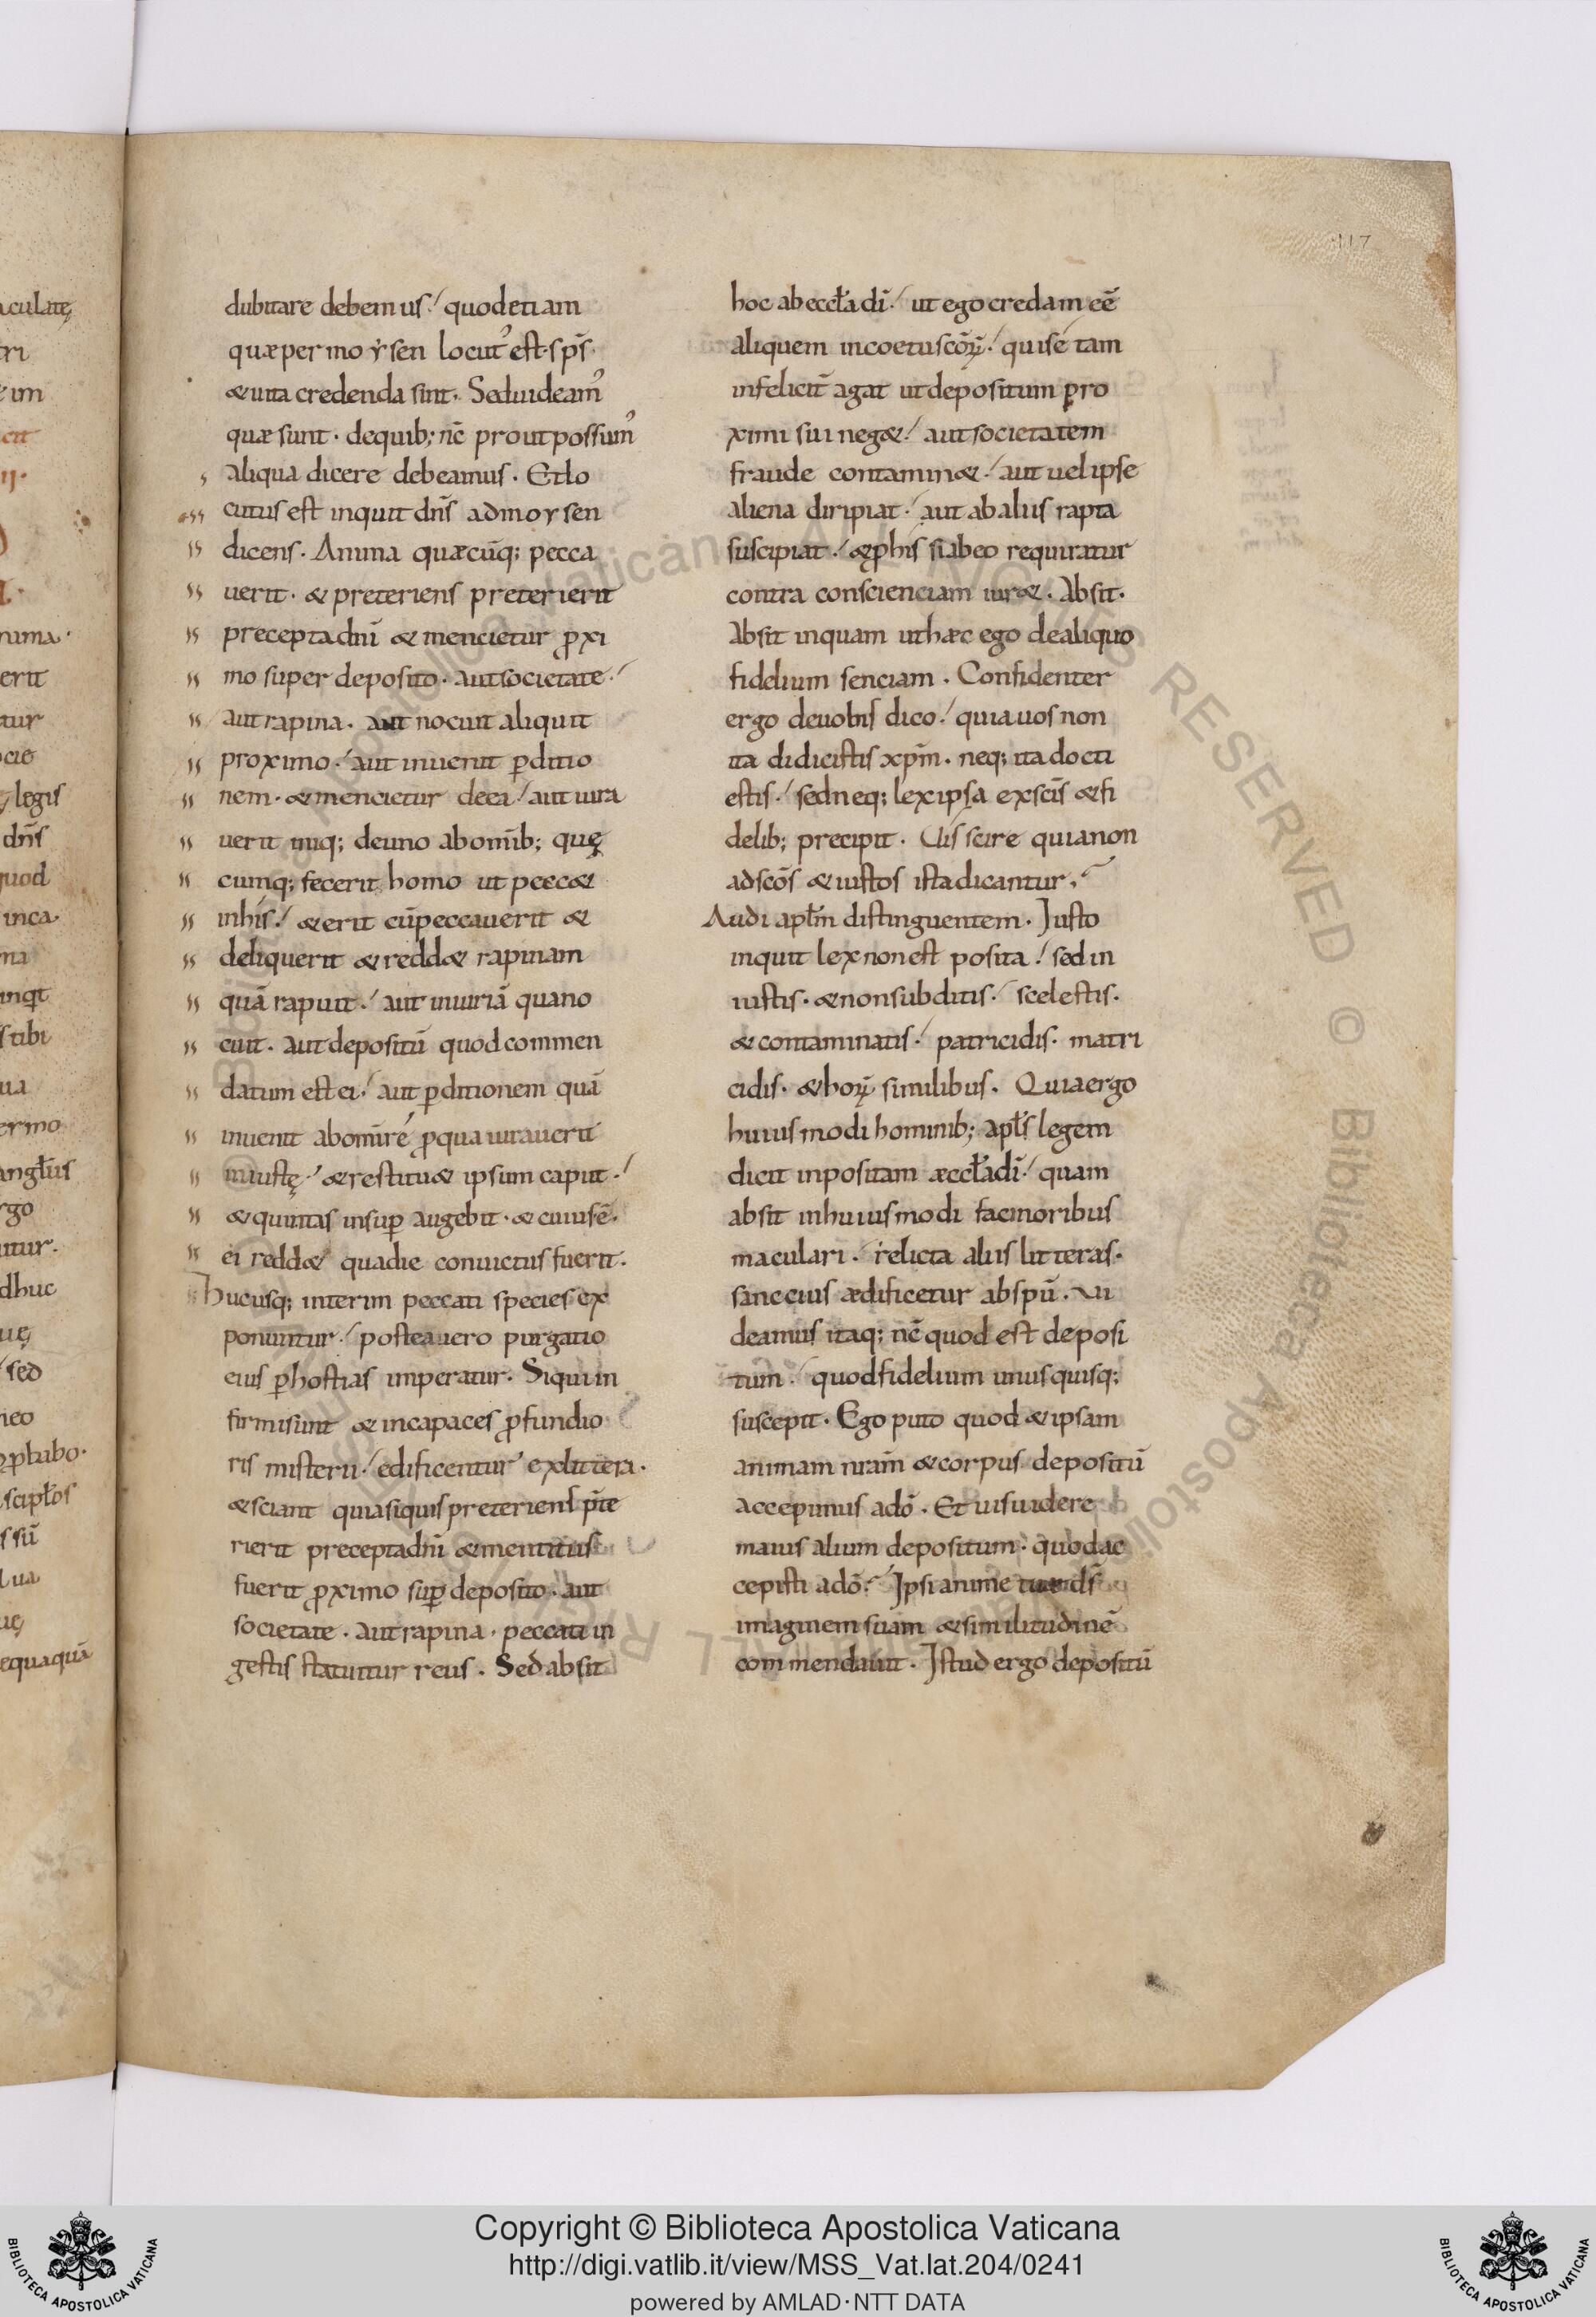 117
dubitare debemus quod etiam
quæ per moysen locut᾿ est sp̄s
& uita credenda sint. Sed uideam᾿
quæ sunt. de quib; nc̄ prout possum᾿
aliqua dicere debeamus. Et lo
cutus est inquit dn̄s ad moysen
dicens. Anima quæcūq; pecca
uerit. & preteriens preterierit
precepta dn̄i & mencietur ꝓxi
mo super deposito. aut societate
aut rapina. aut nocuit aliquit
proximo. aut inuenit ꝑditio
nem. & mencietur de ea aut iura
uerit iniq; de uno ab omīb; quę
cumq; fecerit homo ut pecc&
in his. & erit cū peccauerit &
deliquerit & redd& rapinam
quā rapuit. aut iniuriā qua no
cuit. aut depositū quod commen
datum est ei. aut ꝑditionem quā
inuenit ab omīre ꝓ qua iurauerit
iniustę & restitu& ipsum caput.
& quintas insuꝑ augebit. & cuius ē.
ei redd& qua die conuictus fuerit.
Hucusq; interim peccati species ex
ponuntur. postea uero purgatio
eius ꝑ hostias imperatur. Si qui in
firmi sunt & incapaces ꝓfundio
ris misterii. edificentur ex littera.
& sciant quia si quis preteriens p̄te
rierit precepta dn̄i & mentitus
fuerit ꝓximo suꝑ deposito. aut
societate. aut rapina. peccati in
gestis statuitur reus. Sed absit
hoc ab eccƚa dī. ut ego credam eē
aliquem in coetu scōꝝ. qui se tam
infelicit̄ agat ut depositum pro
ximi sui neg&. aut societatem
fraude contamin&. aut uel ipse
aliena diripiat. aut ab aliis rapta
suscipiat. & ꝓ his si ab eo requiratur
contra conscienciam iur&. Absit.
Absit inquam ut hæc ego de aliquo
fidelium senciam. Confidenter
ergo de uobis dico. quia uos non
ita didicistis xp̄m. neq; ita docti
estis. sed neq; lex ipsa ex scīs & fi
delib; precipit. Uis scire quia non
ad scōs & iustos ista dicantur.
Audi apƚm distinguentem. Justo
inquit lex non est posita. sed in
iustis. & non subditis. scelestis.
& contaminatis. patricidis. matri
cidis. & hoꝝ similibus. Quia ergo
huiusmodi hominib; apƚs legem
dicit inpositam æccƚa dī. quam
absit in huiusmodi facinoribus
maculari. relicta aliis litteras.
sanc eius ædificetur ab spū. Ui
deamus itaq; nc̄ quod est deposi
tum. quod fidelium unusquisq;
suscepit. Ego puto quod & ipsam
animam nr̄am & corpus depositū
accepimus a dō. Et uis uidere
maius alium depositum. quod ac
cepisti a dō. Ipsi anime tuæ ds̄
imaginem suam & similitudinē
commendauit. Istud ergo depositū
Copyright © Biblioteca Apostolica Vaticana
http://digi.vatlib.it/view/MSS_Vat.lat.204/0241
powered by AMLAD·NTT DATA